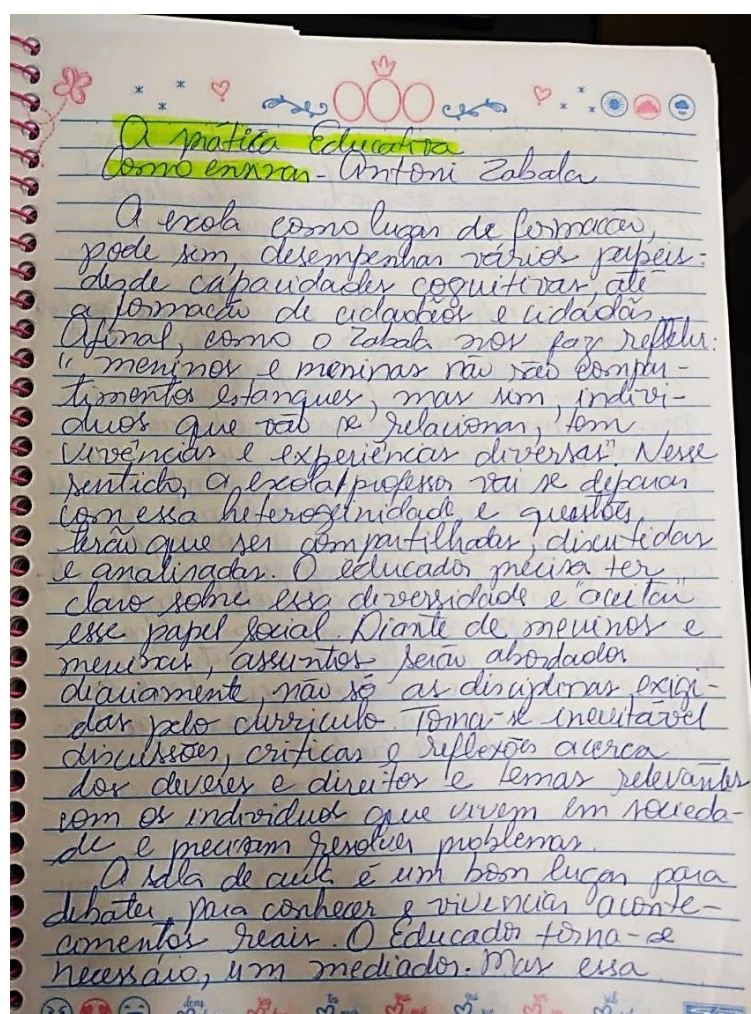 A prática Educativa
Como ensinar - Antoni Zabala
A escola como lugar de formação,
pode sim, desempenhar vários papéis:
desde capacidades cognitivas, até
a formação de cidadãos e cidadãs.
Afinal, como o Zabala nos faz refletir:
"meninos e meninas não são compar-
timentos estanques, mas sim, indiví-
duos que vão se relacionar, tem
vivências e experiências diversas". Nesse
sentido, a escola/professor vai se deparar
com essa heterogeinidade e questões
terão que ser compartilhadas, discutidas
e analisadas. O educador precisa ter
claro sobre essa diversidade e "aceitar"
esse papel social. Diante de meninos e
meninas, assuntos serão abordados
diariamente, não só as disciplinas exigi-
das pelo curriculo. Torna-se inevitável
discussões, críticas e reflexões acerca
dos deveres e direitos e temas relevantes
com os individuos que vivem em socieda-
de e precisam resolver problemas.
A sala de aula é um bom lugar para
debater, para conhecer e vivenciar aconte-
comentos reais. O Educador torna-se
necessáio, um mediador. Mas essa